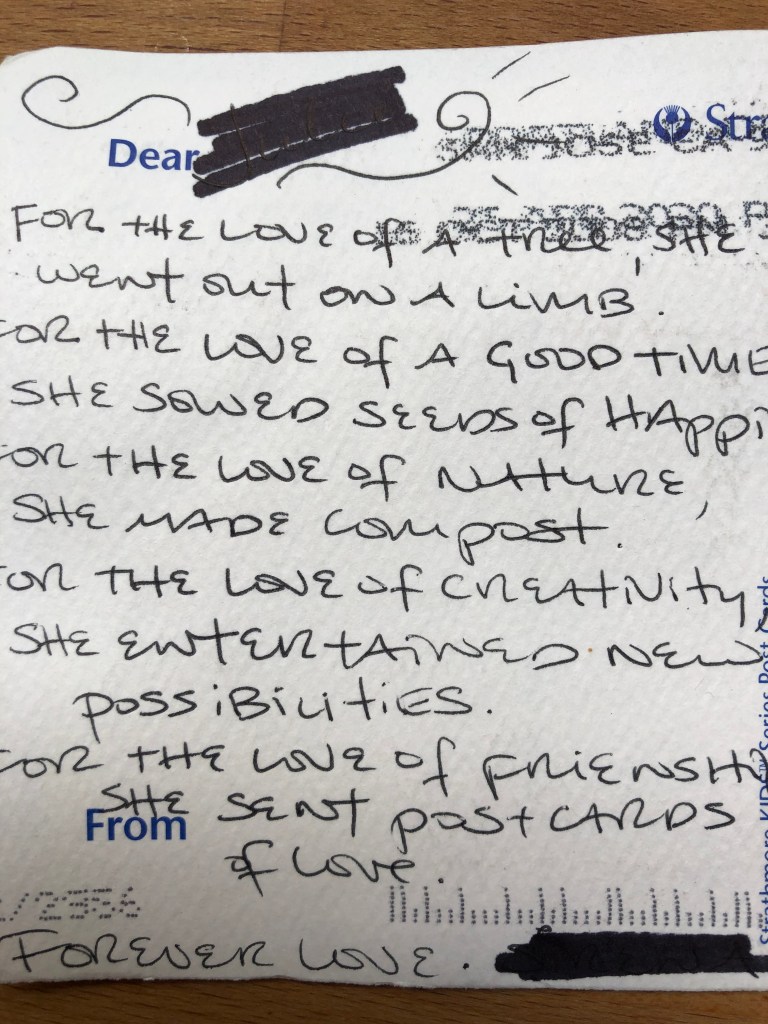 Dear
Str
FOR THE LOVE of A TREE, SHE
WENT OUT ON A LIMB.
FOR THE LOVE of A GOOD TIME
SHE SOWED SEEDS of HAppi
FOR THE LOVE of NATURE,
SHE MADE COMPOST.
FOR THE LOVE of CREATIVITY,
SHE ENTERTAINED NEW
POSSIBILITIES.
FOR THE LOVE of FRIENSH
SHE SENT POSTCARDS
From
of LOVE.
FOREVER LOVE.
Strathmore KIDS™ Series Post Cards